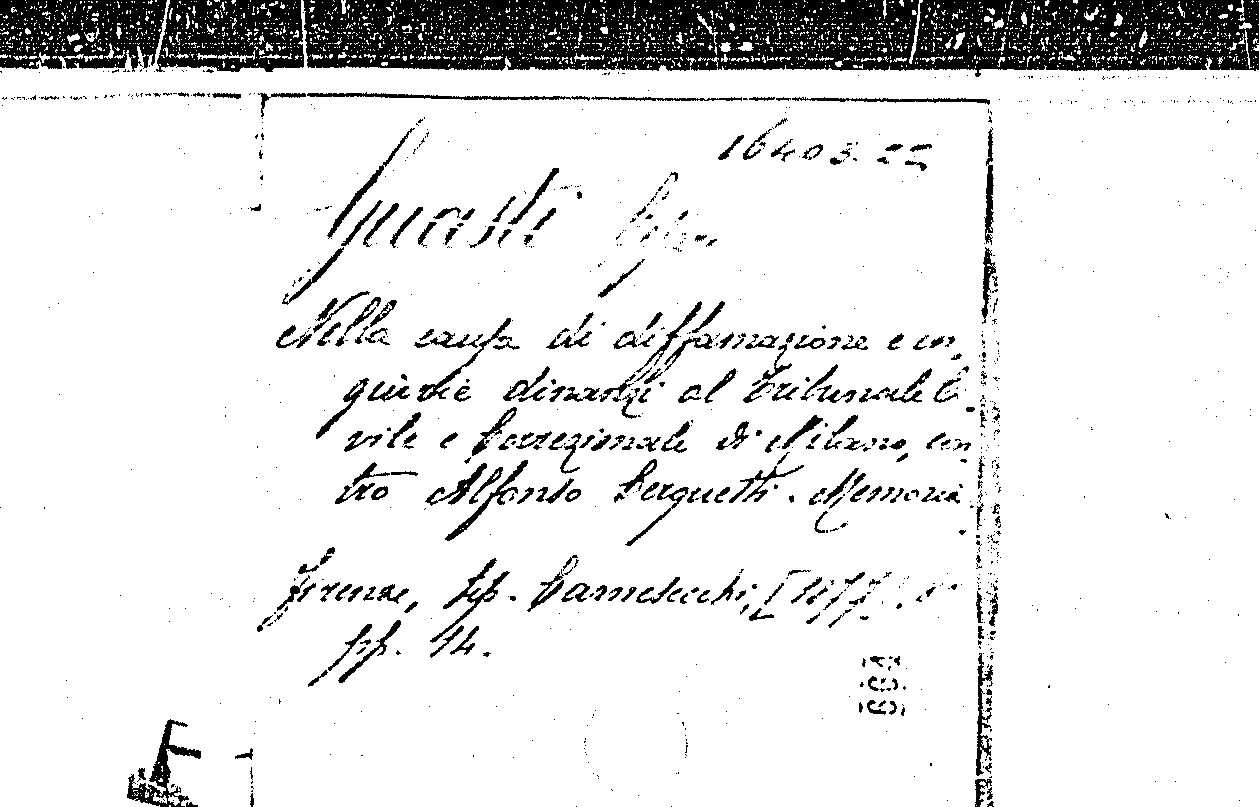 16403. 22
Guasti
Nella causa di diffamazione e in,
giurie dinanzi al Tribunale Ci,
vile e Correzionale di Milano, con
tro Alfonso Cerquetti. Memoria.
Firenze, tip. Carnesecchi, [1877].
pp. 14.